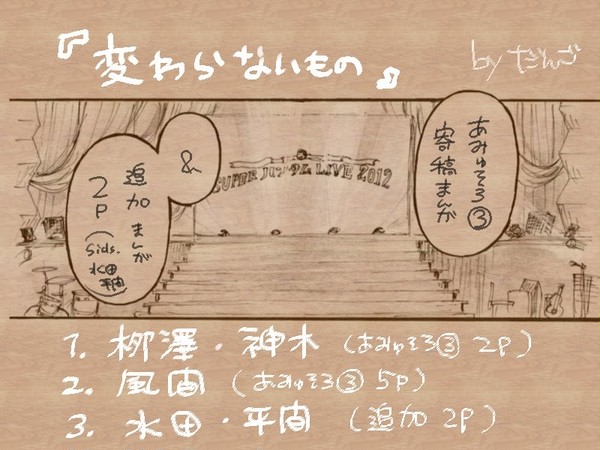 『変わらないもの』
by だんご
あみゅそろ③
寄稿まんが
&
追加 まんが
2P
(Side.
水田
平間)
SUPER ハンサム LIVE 2012
1. 柳澤・神木 (あみゅそろ③ 2P)
2. 風間 (あみゅそろ③ 5P)
3. 水田・平間 (追加 2P)